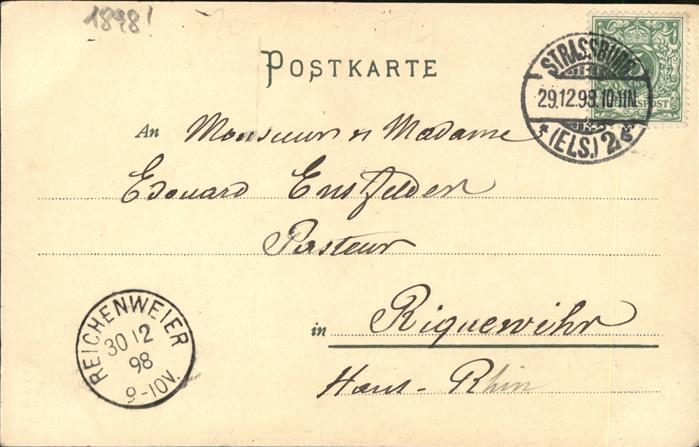 1898!
POSTKARTE
STRASSBURG
29.12.98.10-11N.
* (ELS.) 2 c
REICHSPOST
An Monsieur et Madame
Edouard Ensfelder
Pasteur
in Riquewihr
Haut-Rhin
REICHENWEIER
30 12
98
9-10V.